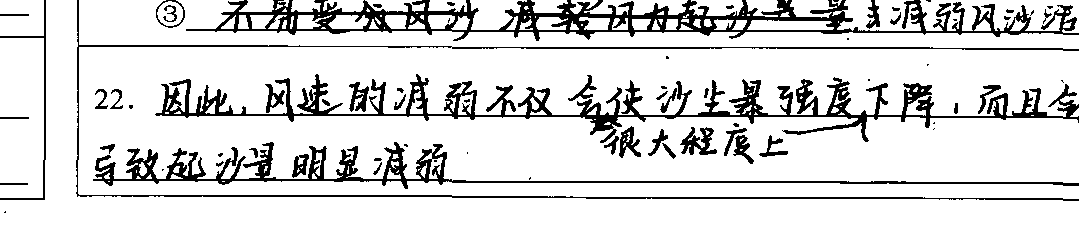 ③ 不易变成风沙 减轻风力起沙量,去减弱风沙活
22. 因此,风速的减弱不仅会使沙尘暴强度下降,而且会
很大程度上
导致起沙量明显减弱